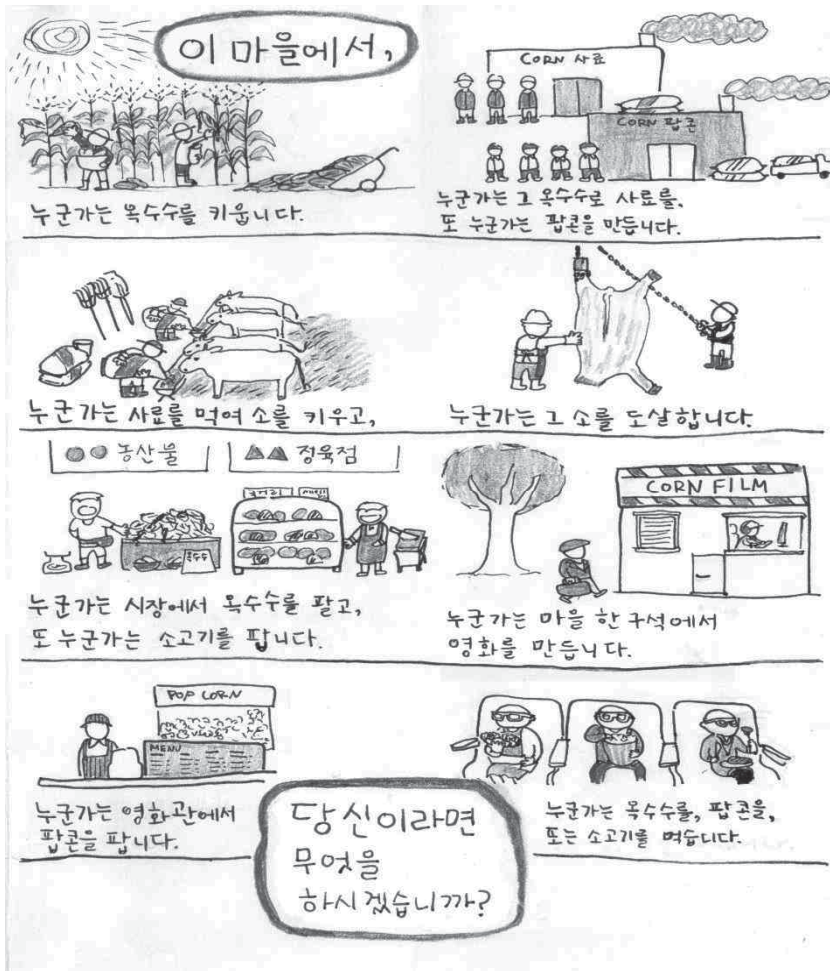 이 마을에서,
누군가는 옥수수를 키웁니다.
CORN 사료
CORN 팝콘
누군가는 그 옥수수로 사료를,
또 누군가는 팝콘을 만듭니다.
누군가는 사료를 먹여 소를 키우고,
누군가는 그 소를 도살합니다.
농산물
정육점
옥수수
누군가는 시장에서 옥수수를 팔고,
또 누군가는 소고기를 팝니다.
CORN FILM
누군가는 마을 한 구석에서
영화를 만듭니다.
POP CORN
MENU
누군가는 영화관에서
팝콘을 팝니다.
누군가는 옥수수를, 팝콘을,
또는 소고기를 먹습니다.
당신이라면
무엇을
하시겠습니까?